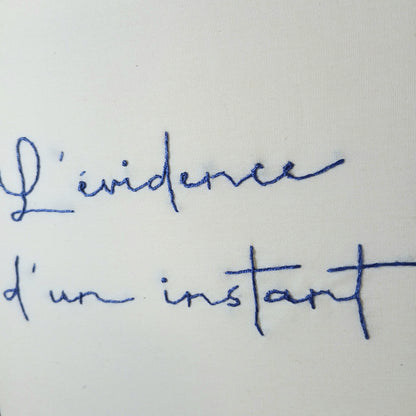 L'évidence
d'un instant